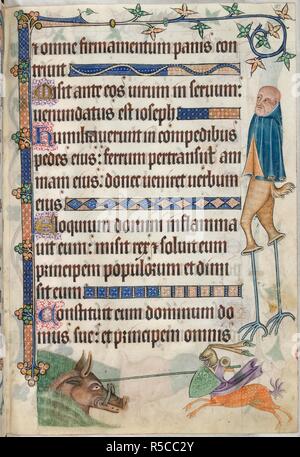 ⁊ omne firmamentum panis con
triuit
Misit ante eos uirum in seruum
uenundatus est ioseph
Humiliauerunt in compedibus
pedes eius: ferrum pertransiit ani
mam eius: donec ueniret uerbum
eius
Eloquium domini inflamma
uit eum: misit rex ⁊ soluit eum
principem populorum et dimi
sit eum
Constituit eum dominum do
mus sue: et principem omnis
alamy
Image ID: R5CC2Y
www.alamy.com